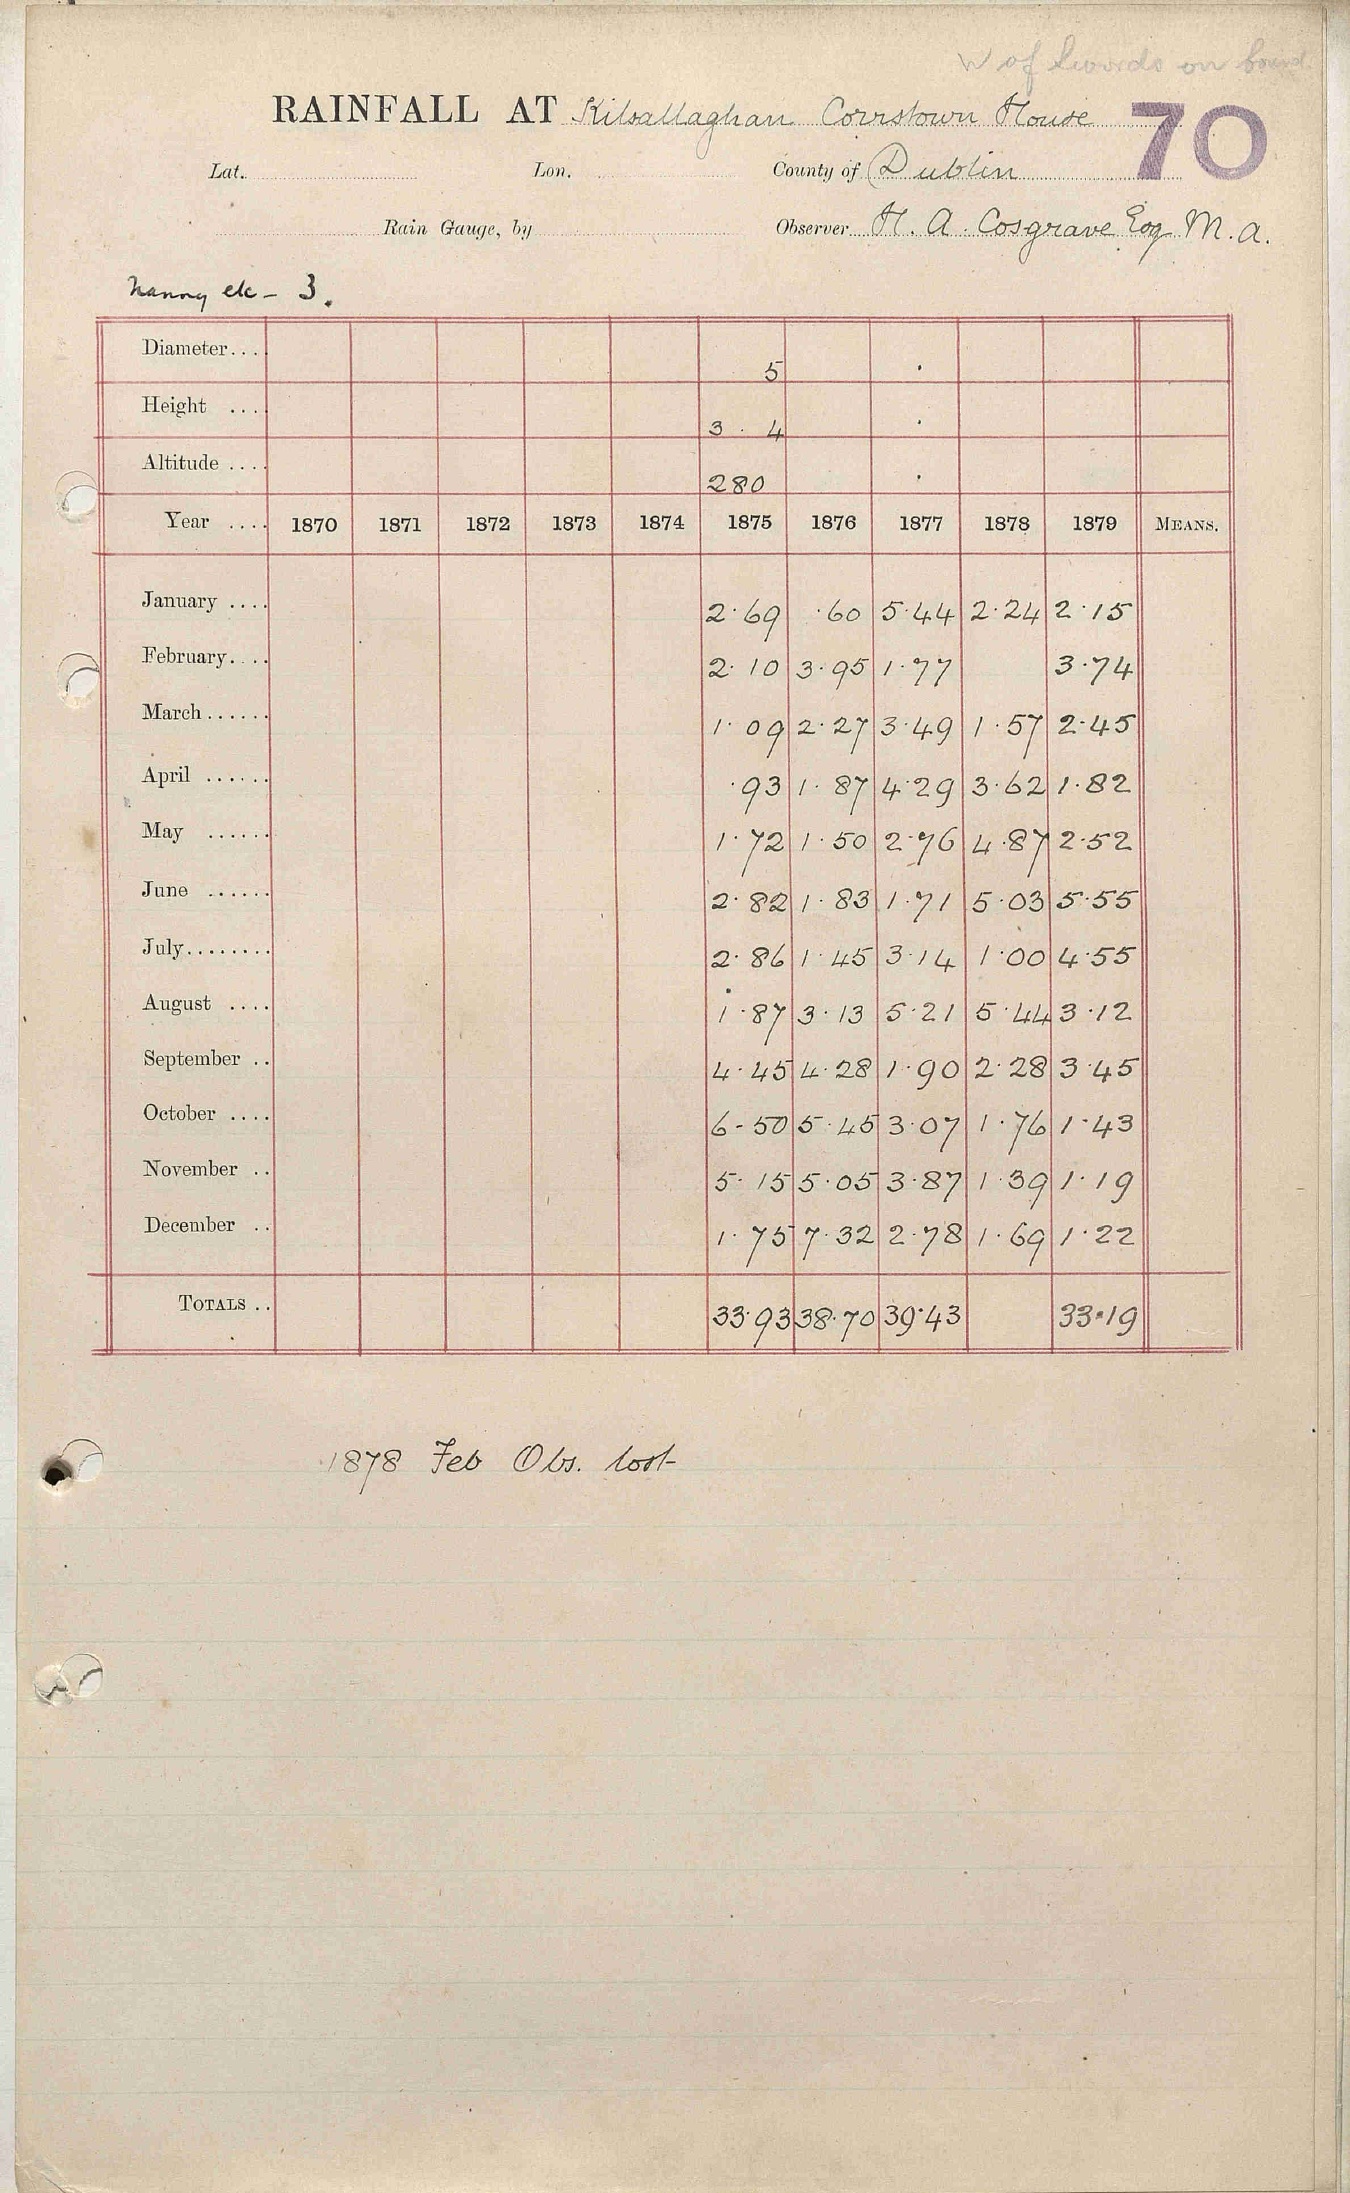 W of Swords on board.
RAINFALL AT Kilsallaghan Corrstown House 70
Lat. Lon. County of Dublin
Rain Gauge, by Observer H. A. Cosgrave Esq M.A.
Nanny etc - 3.
Diameter.... 5
Height .... 3 . 4
Altitude .... 280
Year .... 1870 1871 1872 1873 1874 1875 1876 1877 1878 1879 MEANS.
January .... 2.69 .60 5.44 2.24 2.15
February.... 2.10 3.95 1.77 3.74
March...... 1.09 2.27 3.49 1.57 2.45
April ...... .93 1.87 4.29 3.62 1.82
May ...... 1.72 1.50 2.76 4.87 2.52
June ...... 2.82 1.83 1.71 5.03 5.55
July........ 2.86 1.45 3.14 1.00 4.55
August .... 1.87 3.13 5.21 5.44 3.12
September .. 4.45 4.28 1.90 2.28 3.45
October .... 6.50 5.45 3.07 1.76 1.43
November .. 5.15 5.05 3.87 1.39 1.19
December .. 1.75 7.32 2.78 1.69 1.22
TOTALS .. 33.93 38.70 39.43 33.19
1878 Feb Obs. lost